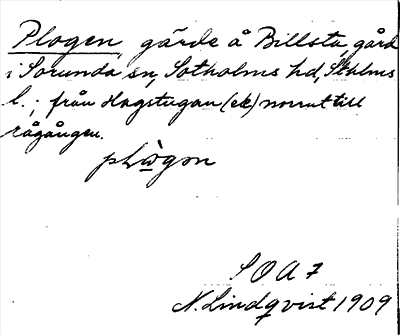 Plogen, gärde å Billsta, gård
i Sorunda sn, Sotholms hd, Sthlms
l.; från Hagstugan (ek) norrut till
rågången.
plògon
S O A 7
N. Lindqvist 1909